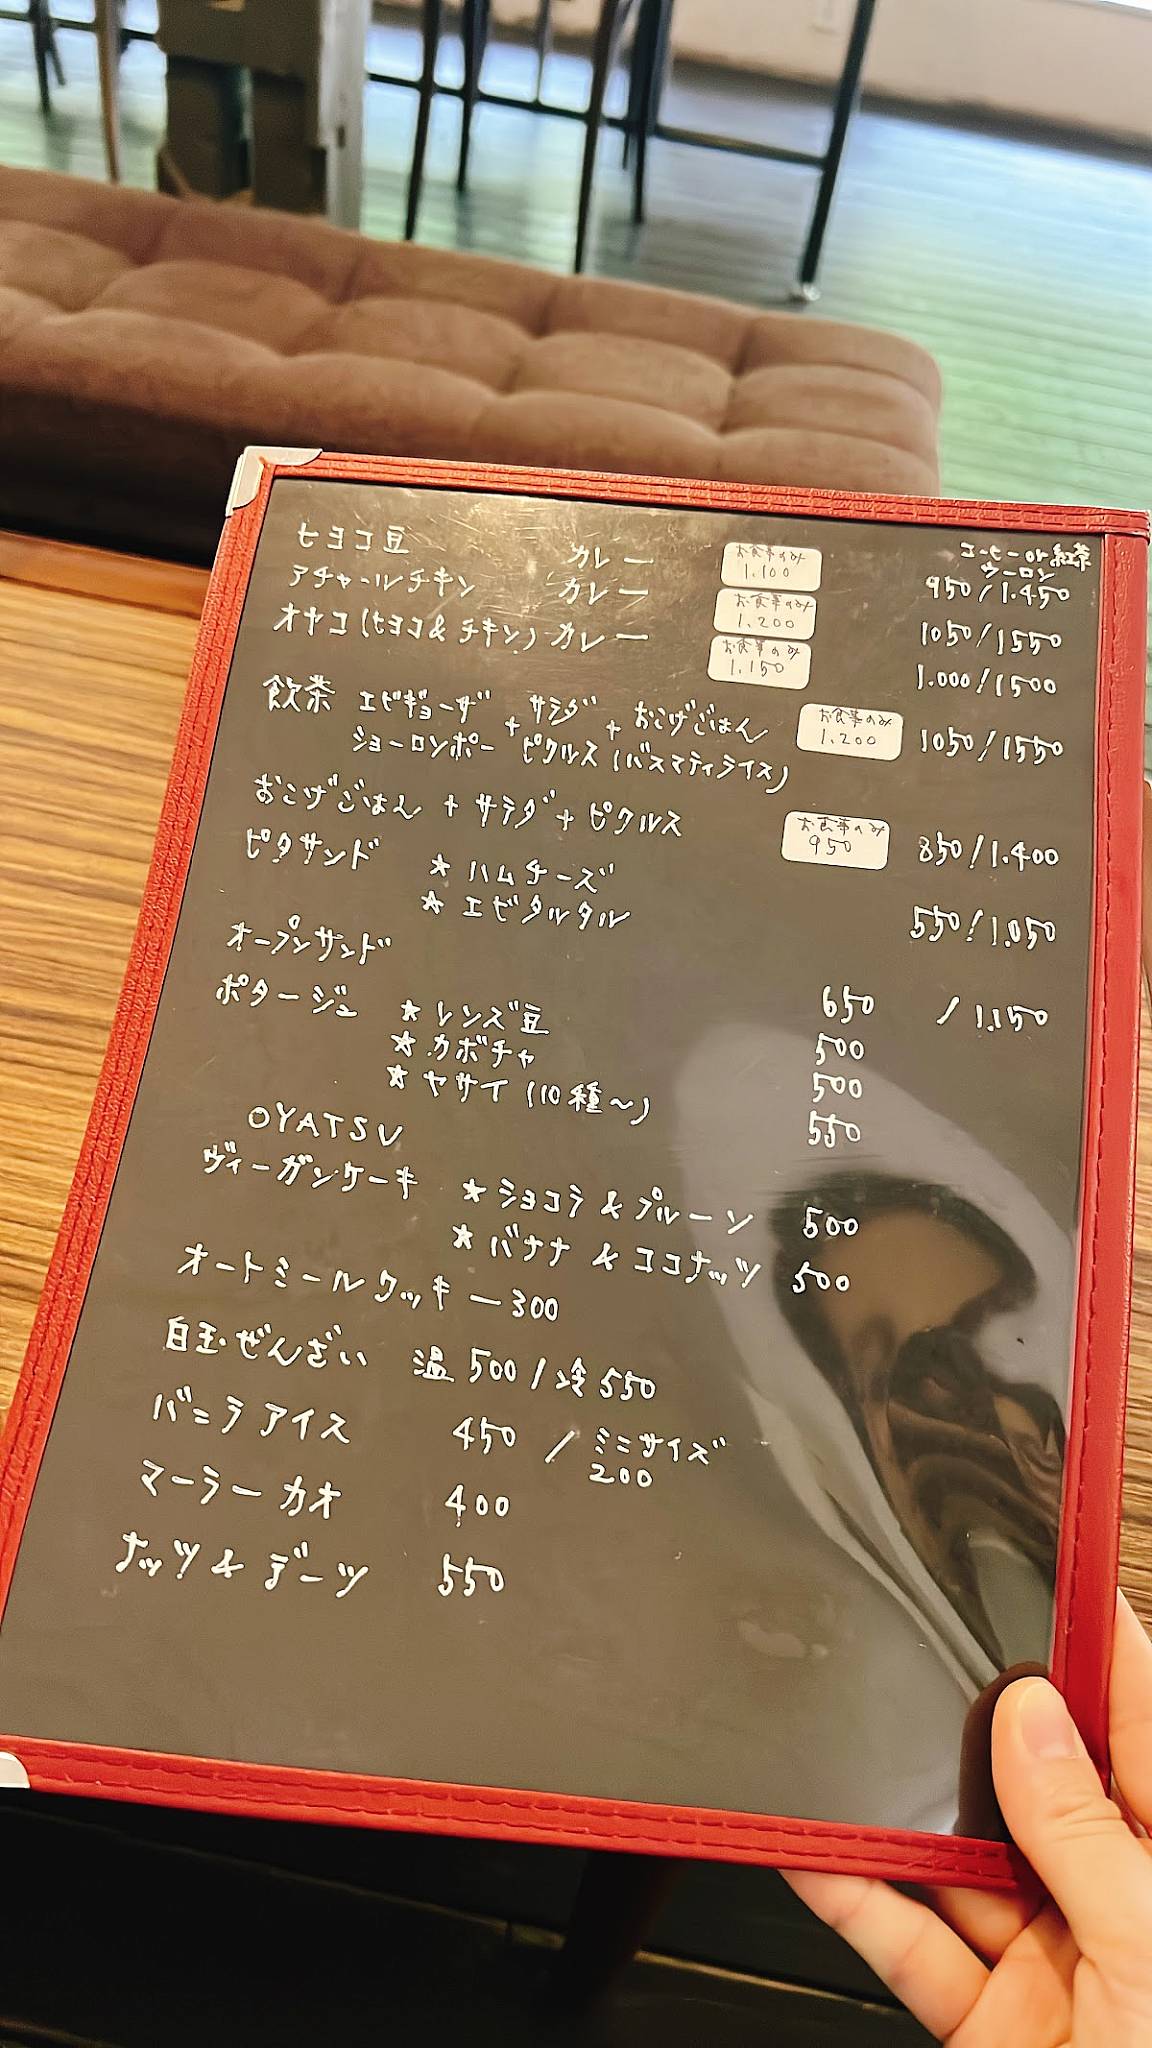 コーヒー or 紅茶
ウーロン
ヒヨコ豆 カレー お食事のみ 1.100 950/1.450
アチャールチキン カレー お食事のみ 1.200 1050/1550
オヤコ(ヒヨコ&チキン)カレー お食事のみ 1.150 1.000/1500
飲茶 エビギョーザ + サラダ + おこげごはん お食事のみ 1.200 1050/1550
ショーロンポー ピクルス (バスマティライス)
おこげごはん + サラダ + ピクルス お食事のみ 950 850/1.400
ピタサンド ★ハムチーズ
★エビタルタル 550/1.050
オープンサンド 650 /1.150
ポタージュ ★レンズ豆 500
★カボチャ 500
★ヤサイ(10種〜) 550
OYATSU
ヴィーガンケーキ ★ショコラ&プルーン 500
★バナナ&ココナッツ 500
オートミールクッキー300
白玉ぜんざい 温500/冷550
バニラアイス 450 / ミニサイズ
200
マーラーカオ 400
ナッツ&デーツ 550